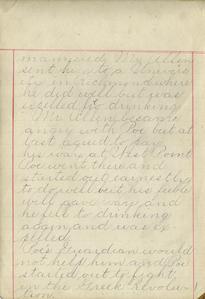 mannered. Mr. Allen
sent him to a University
in Richmond where
he did well but was
expelled for drinking
Mr Allen became
angry with Poe but at
last agreed to pay
his way at West Point
Poe went there and
started out earnestly
to do well but his feeble
will gave way and
he fell to drinking
again and was ex-
pelled.
Poe's guardian would
not help him and he
started out to fight
in the Greek Revolu-
tion.